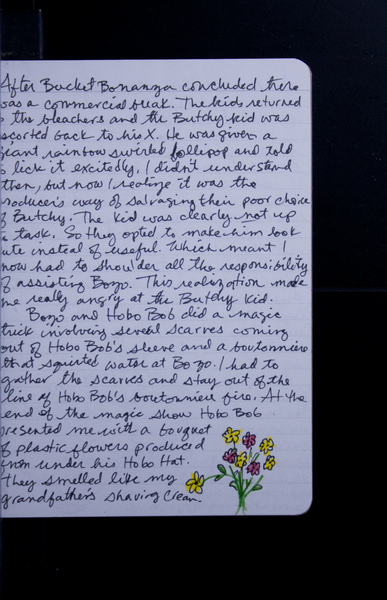 After Bucket Bonanza concluded there
was a commercial break. The kids returned
the bleachers and the Butchy kid was
scorted back to his X. He was given a
giant rainbow swirled lollipop and told
lick it excitedly. I didn't understand
then, but now I realize it was the
roducer's way of salvaging their poor choice
f Butchy. The kid was clearly not up
task. So they opted to make him look
ute instead of useful. Which meant I
now had to shoulder all the responsibility
of assisting Bozo. This realization made
me really angry at the Butchy Kid.
Bozo and Hobo Bob did a magic
trick involving several scarves coming
out of Hobo Bob's sleeve and a boutonniere
that squirted water at Bozo. I had to
gather the scarves and stay out of the
line of Hobo Bob's boutonniere fire. At the
end of the magic show Hobo Bob
resented me with a bouquet
of plastic flowers produced
from under his Hobo Hat.
They smelled like my
grandfather's shaving cream.